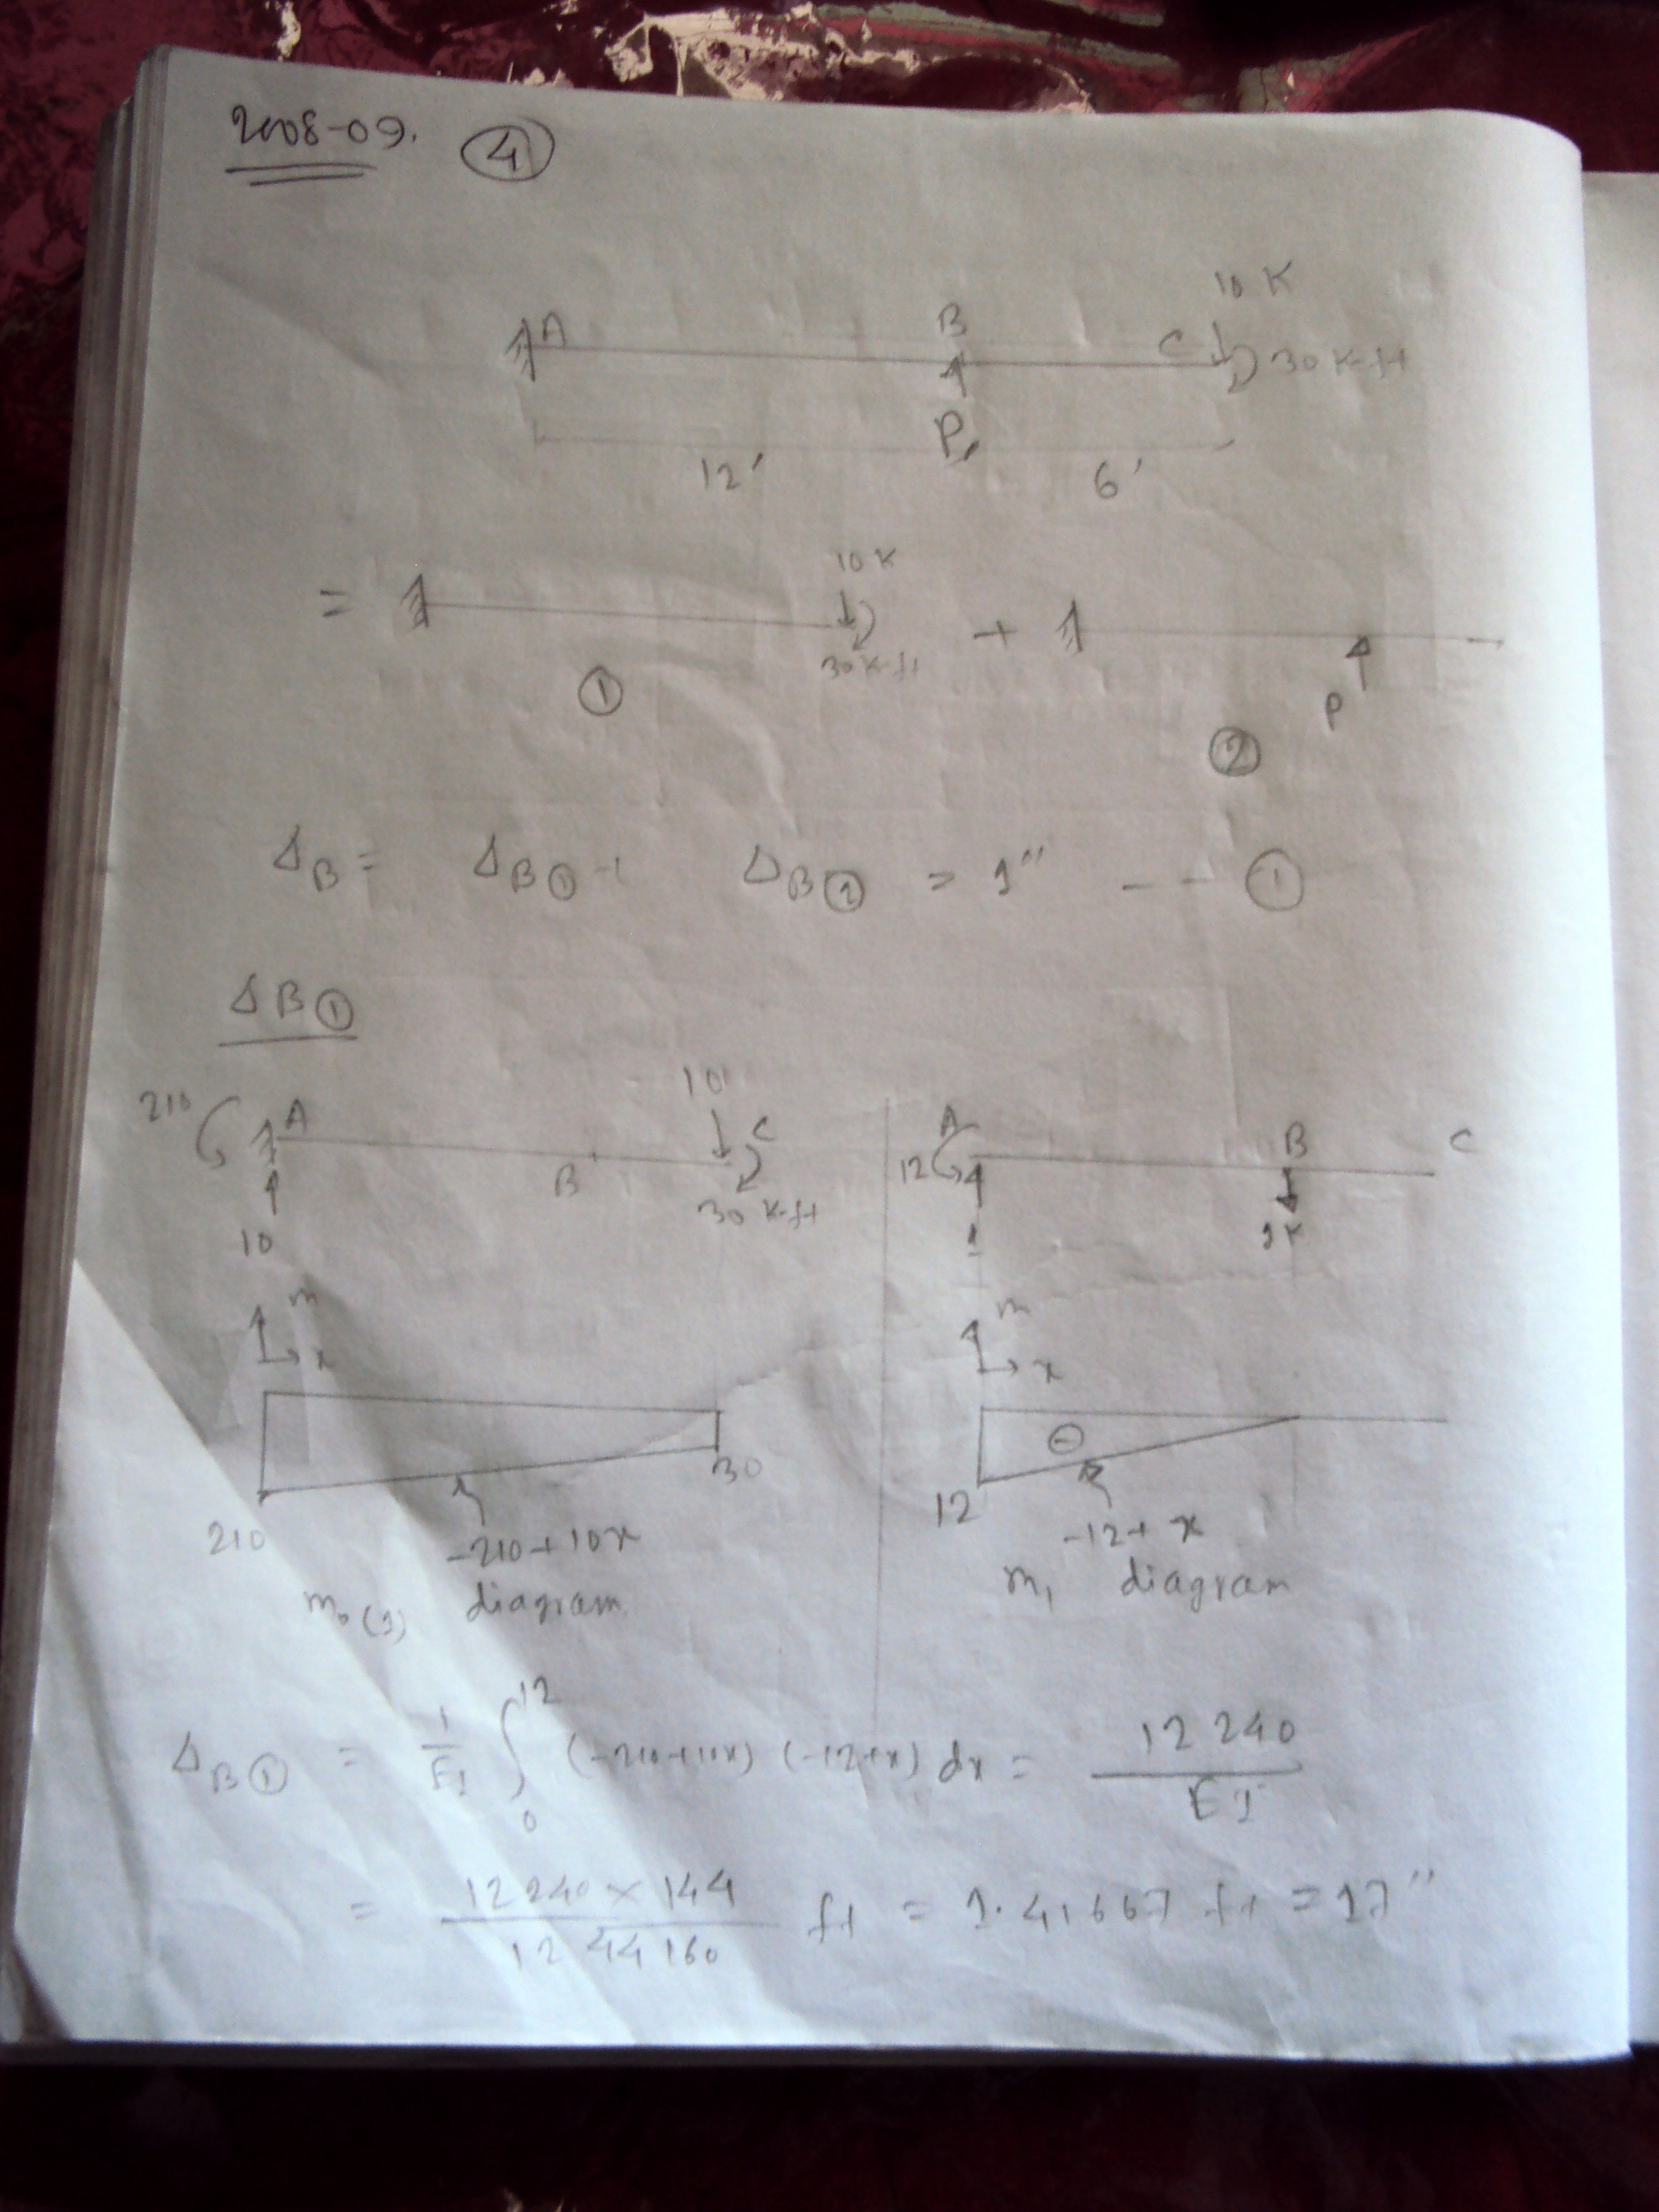 2008-09. ④
10 K
A B C 30 K-ft
P
12' 6'
= 10 K + 
30 K-ft
P
① ②
Δ_B = Δ_B① + Δ_B② = 1" -- ①
ΔB①
210 A 10 C
B
10 30 K-ft
A B C
12
1 1K
m
x
m
x
210 30
-210+10x
m₀(1) diagram
⊖
12
-12+x
m₁ diagram
Δ_B① = 1/EI ∫₀¹² (-210+10x) (-12+x) dx = 12240/EI
= 12240 × 144 / 1244160 ft = 1.41667 ft = 17"